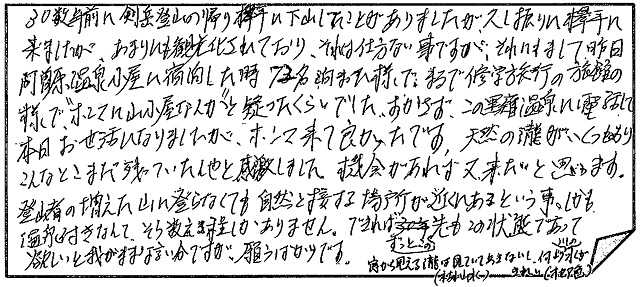 30数年前に剣岳登山の帰り欅平に下山したことがありましたが、久し振りに欅平に
来ましたが、あまりにも観光化されており、それは仕方ない事ですが、それにもまして昨日
阿曽原温泉小屋に宿泊した時 72名泊まった様で、まるで修学旅行の旅館の
様で、"ホンマに山小屋なんか"と疑ったくらいでした。あわてず、この黒薙温泉に電話して
本日お世話になりましたが、ホンマ来て良かったです。天然の滝がいくつもあり
こんなとこまだ残っていたんやと感激しました。機会があれば又来たいと思います。
登山者の増えた山に登らなくても自然と接する場所が近くにあるという事、しかも
温泉付きなんて、そう数え程しかありません。できれば 先もこの状態であって
ずっとこの
欲しいと我がままな言い分ですが、願うばかりです。
窓から見える滝は見ていてあきないし、何より水が
きれい